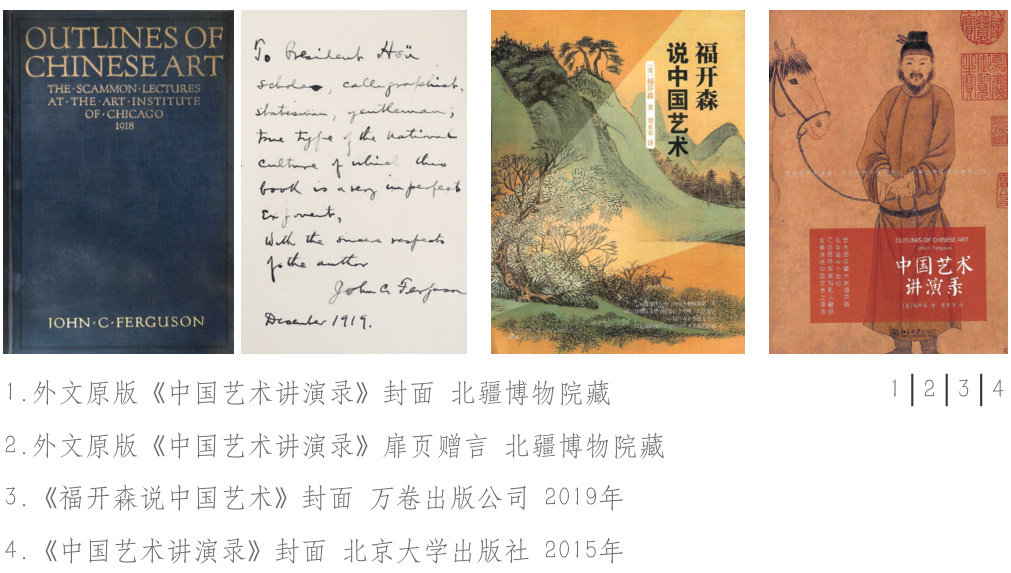 OUTLINES OF
CHINESE ART
THE·SCAMMON·LECTURES
AT·THE·ART·INSTITUTE
OF·CHICAGO
1918
JOHN·C·FERGUSON
To President Hsü
scholar, calligraphist,
statesman, gentleman;
true type of the national
culture of which this
book is a very imperfect
Exponent,
With the sincere respects
of the author
John C. Ferguson
December 1919.
福开森
说中国艺术
[美] 福开森 著
刘永安 译
OUTLINES OF CHINESE ART
John C. Ferguson
中国艺术
讲演录
北京大学出版社
1.外文原版《中国艺术讲演录》封面 北疆博物院藏
2.外文原版《中国艺术讲演录》扉页赠言 北疆博物院藏
3.《福开森说中国艺术》封面 万卷出版公司 2019年
4.《中国艺术讲演录》封面 北京大学出版社 2015年
1|2|3|4